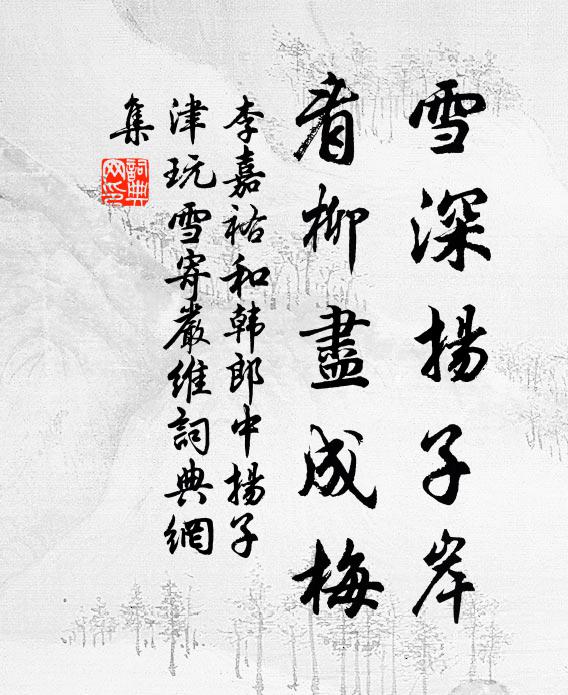 雪深揚子岸
看柳盡成梅
李嘉祐和韩郎中揚子
津玩雪寄嚴维詞典網
集
詞典
网印